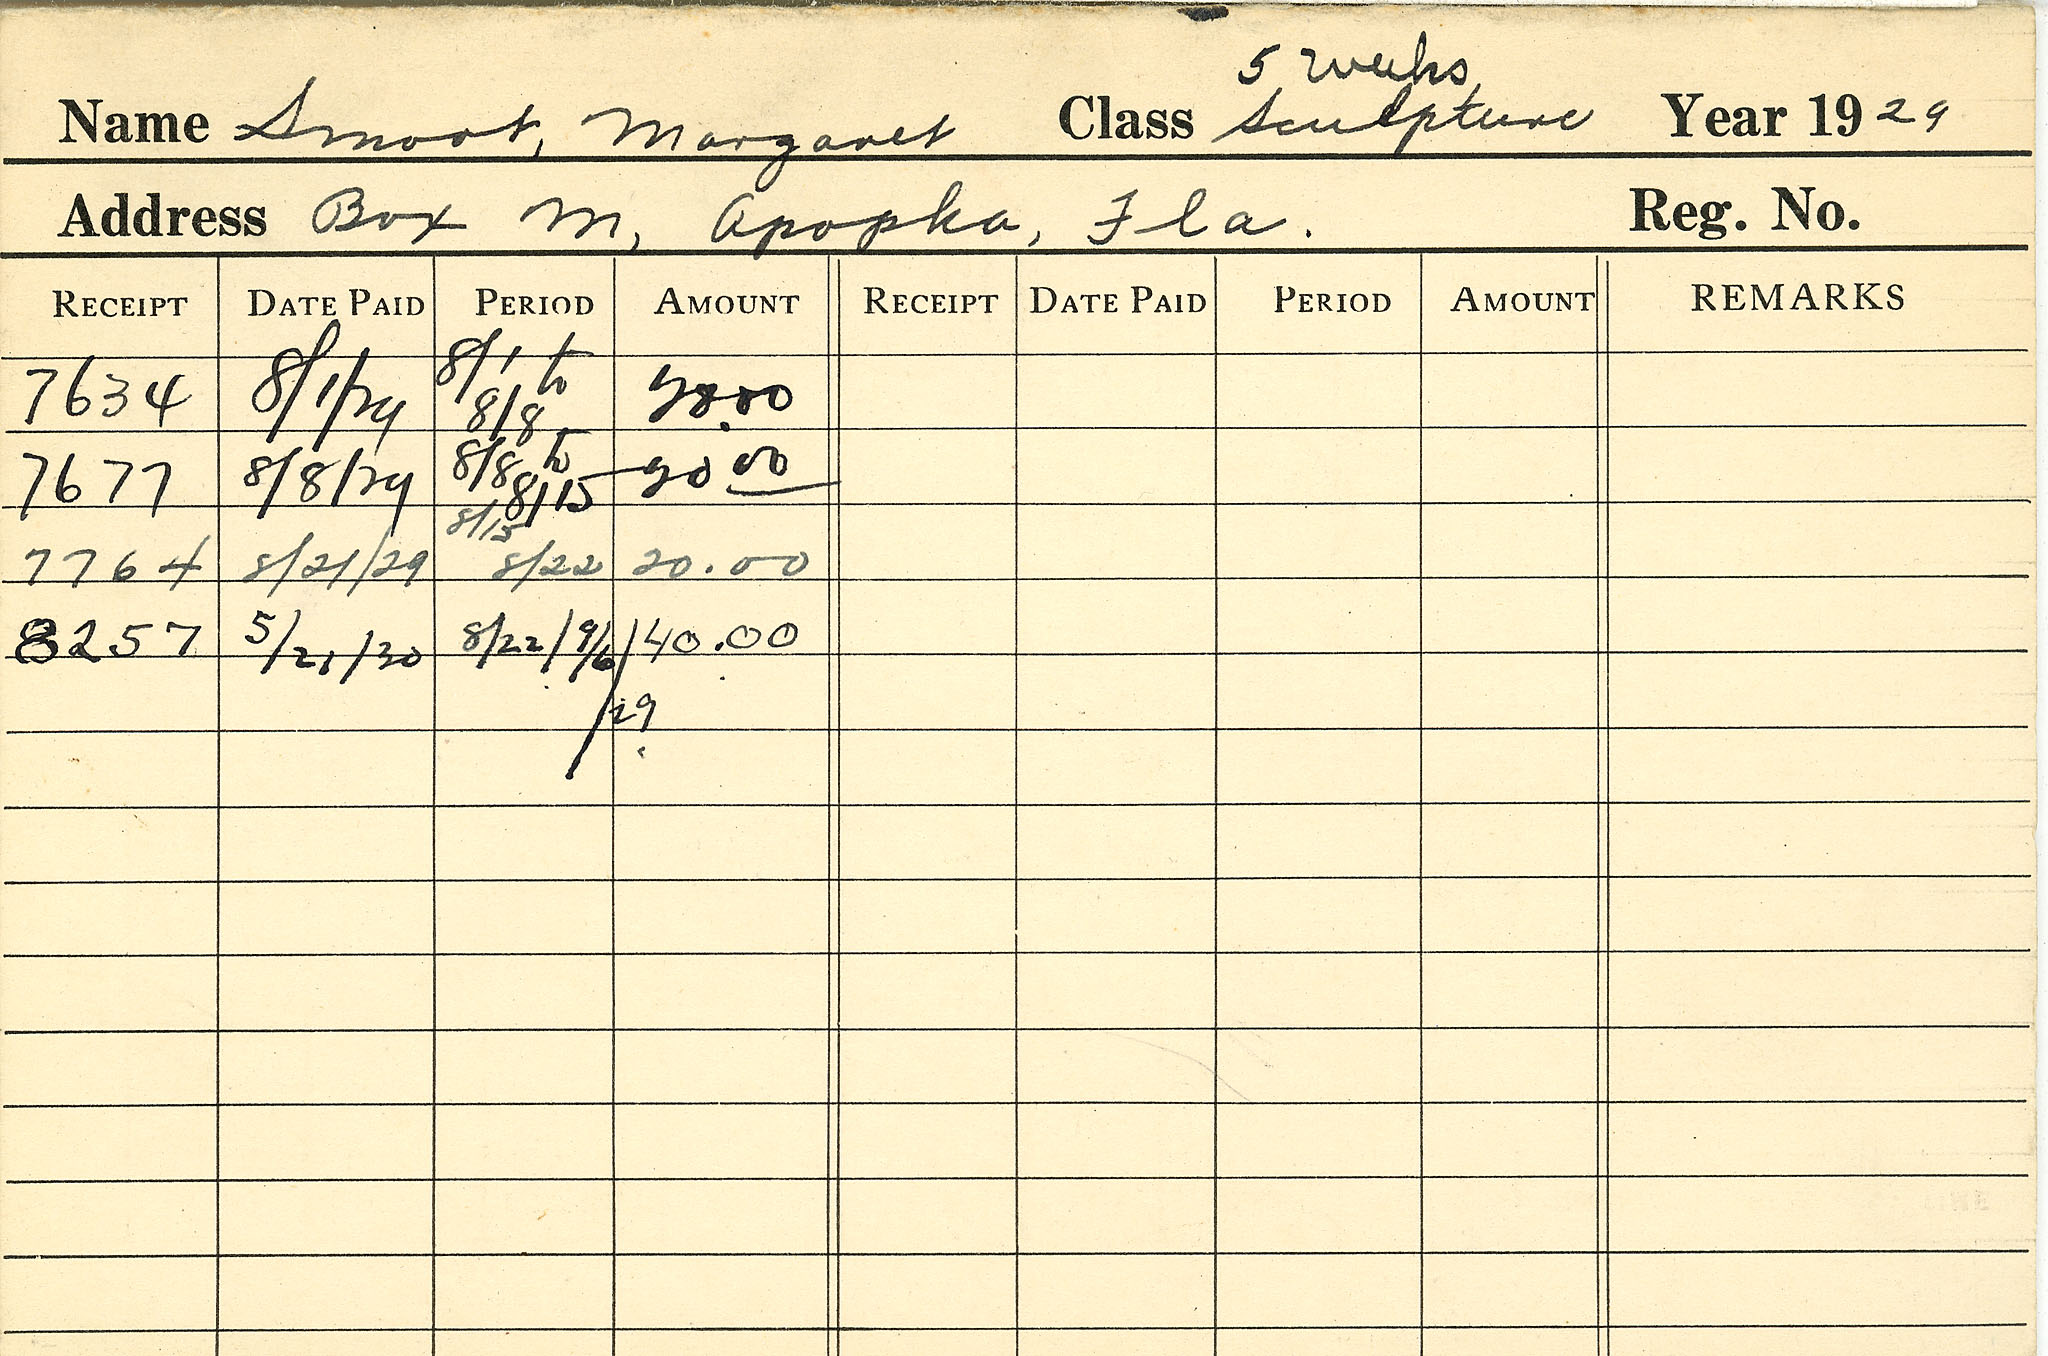 5 weeks
Name Smoot, Margaret Class Sculpture Year 1929
Address Box M, Apopka, Fla. Reg. No.
RECEIPT DATE PAID PERIOD AMOUNT RECEIPT DATE PAID PERIOD AMOUNT REMARKS
7634 8/1/29 8/1 to 8/8 20.00
7677 8/8/29 8/8 to 8/15 20 00
7764 8/21/29 8/15 8/22 20.00
8257 5/21/30 8/22/9/6/29 40.00